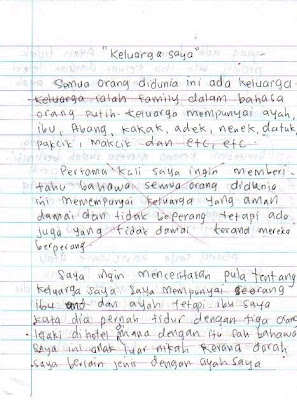 "Keluarga saya"
Semua orang didunia ini ada keluarga
keluarga ialah family dalam bahasa
orang putih. keluarga mempunyai ayah,
ibu, Abang, kakak, adek, nenek, datuk,
pakcik, makcik dan etc, etc
Pertama kali saya ingin memberi-
tahu bahawa semua orang didunia
ini memempunyai keluarga yang aman
damai dan tidak beperang tetapi ada
juga yang tidak damai kerana mereka
berperang
Saya ingin menceritakan pula tentang
keluarga saya. Saya mempunyai seorang
ibu dan ayah tetapi ibu saya
kata dia pernah tidur dengan tiga orang
lelaki dihotel mana dengan itu sah bahawa
saya ini anak luar nikah kerana darah
saya berlain jenis dengan ayah saya